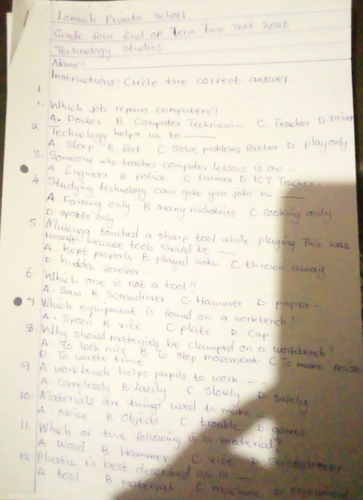 Lomuch Private School
Grade four End of Term Two Test 2026
Technology Studies.
Name:
Instructions: Circle the correct answer.
1.
1. Which job repairs computers?
A. Doctor B Computer Technician C Teacher D. Driver
2. Technology helps us to
A Sleep B Eat C Solve problems faster D play only
3. Someone who teaches computer lessons is an -
A Engineer B Police C Farmer D ICT Teacher
4. Studying technology can give you jobs in
A Farming only B many industries C cooking only
D sports only
5. Malong touched a sharp tool while playing This was
unsafe because tools should be
A kept properly B played with C thrown away
D. hidden forever.
6. Which one is not a tool?
A. Saw B Screwdriver C. Hammer D. paper
7. Which equipment is found on a workbench?
A. Spoon B rice C plate D cup
8. Why should materials be clamped on a workbench?
A. To look nice B To stop movement C To make noise
D. To waste time
9 A workbench helps pupils to work
A carelessly B Lazily C slowly D safely
10. Materials are things used to make
A. Noise B Objects C trouble D games
11 Which of the following is a material?
A wood B Hammer C vice D Screwdriver
12 plastic is best described as a
A tool B material C machine D